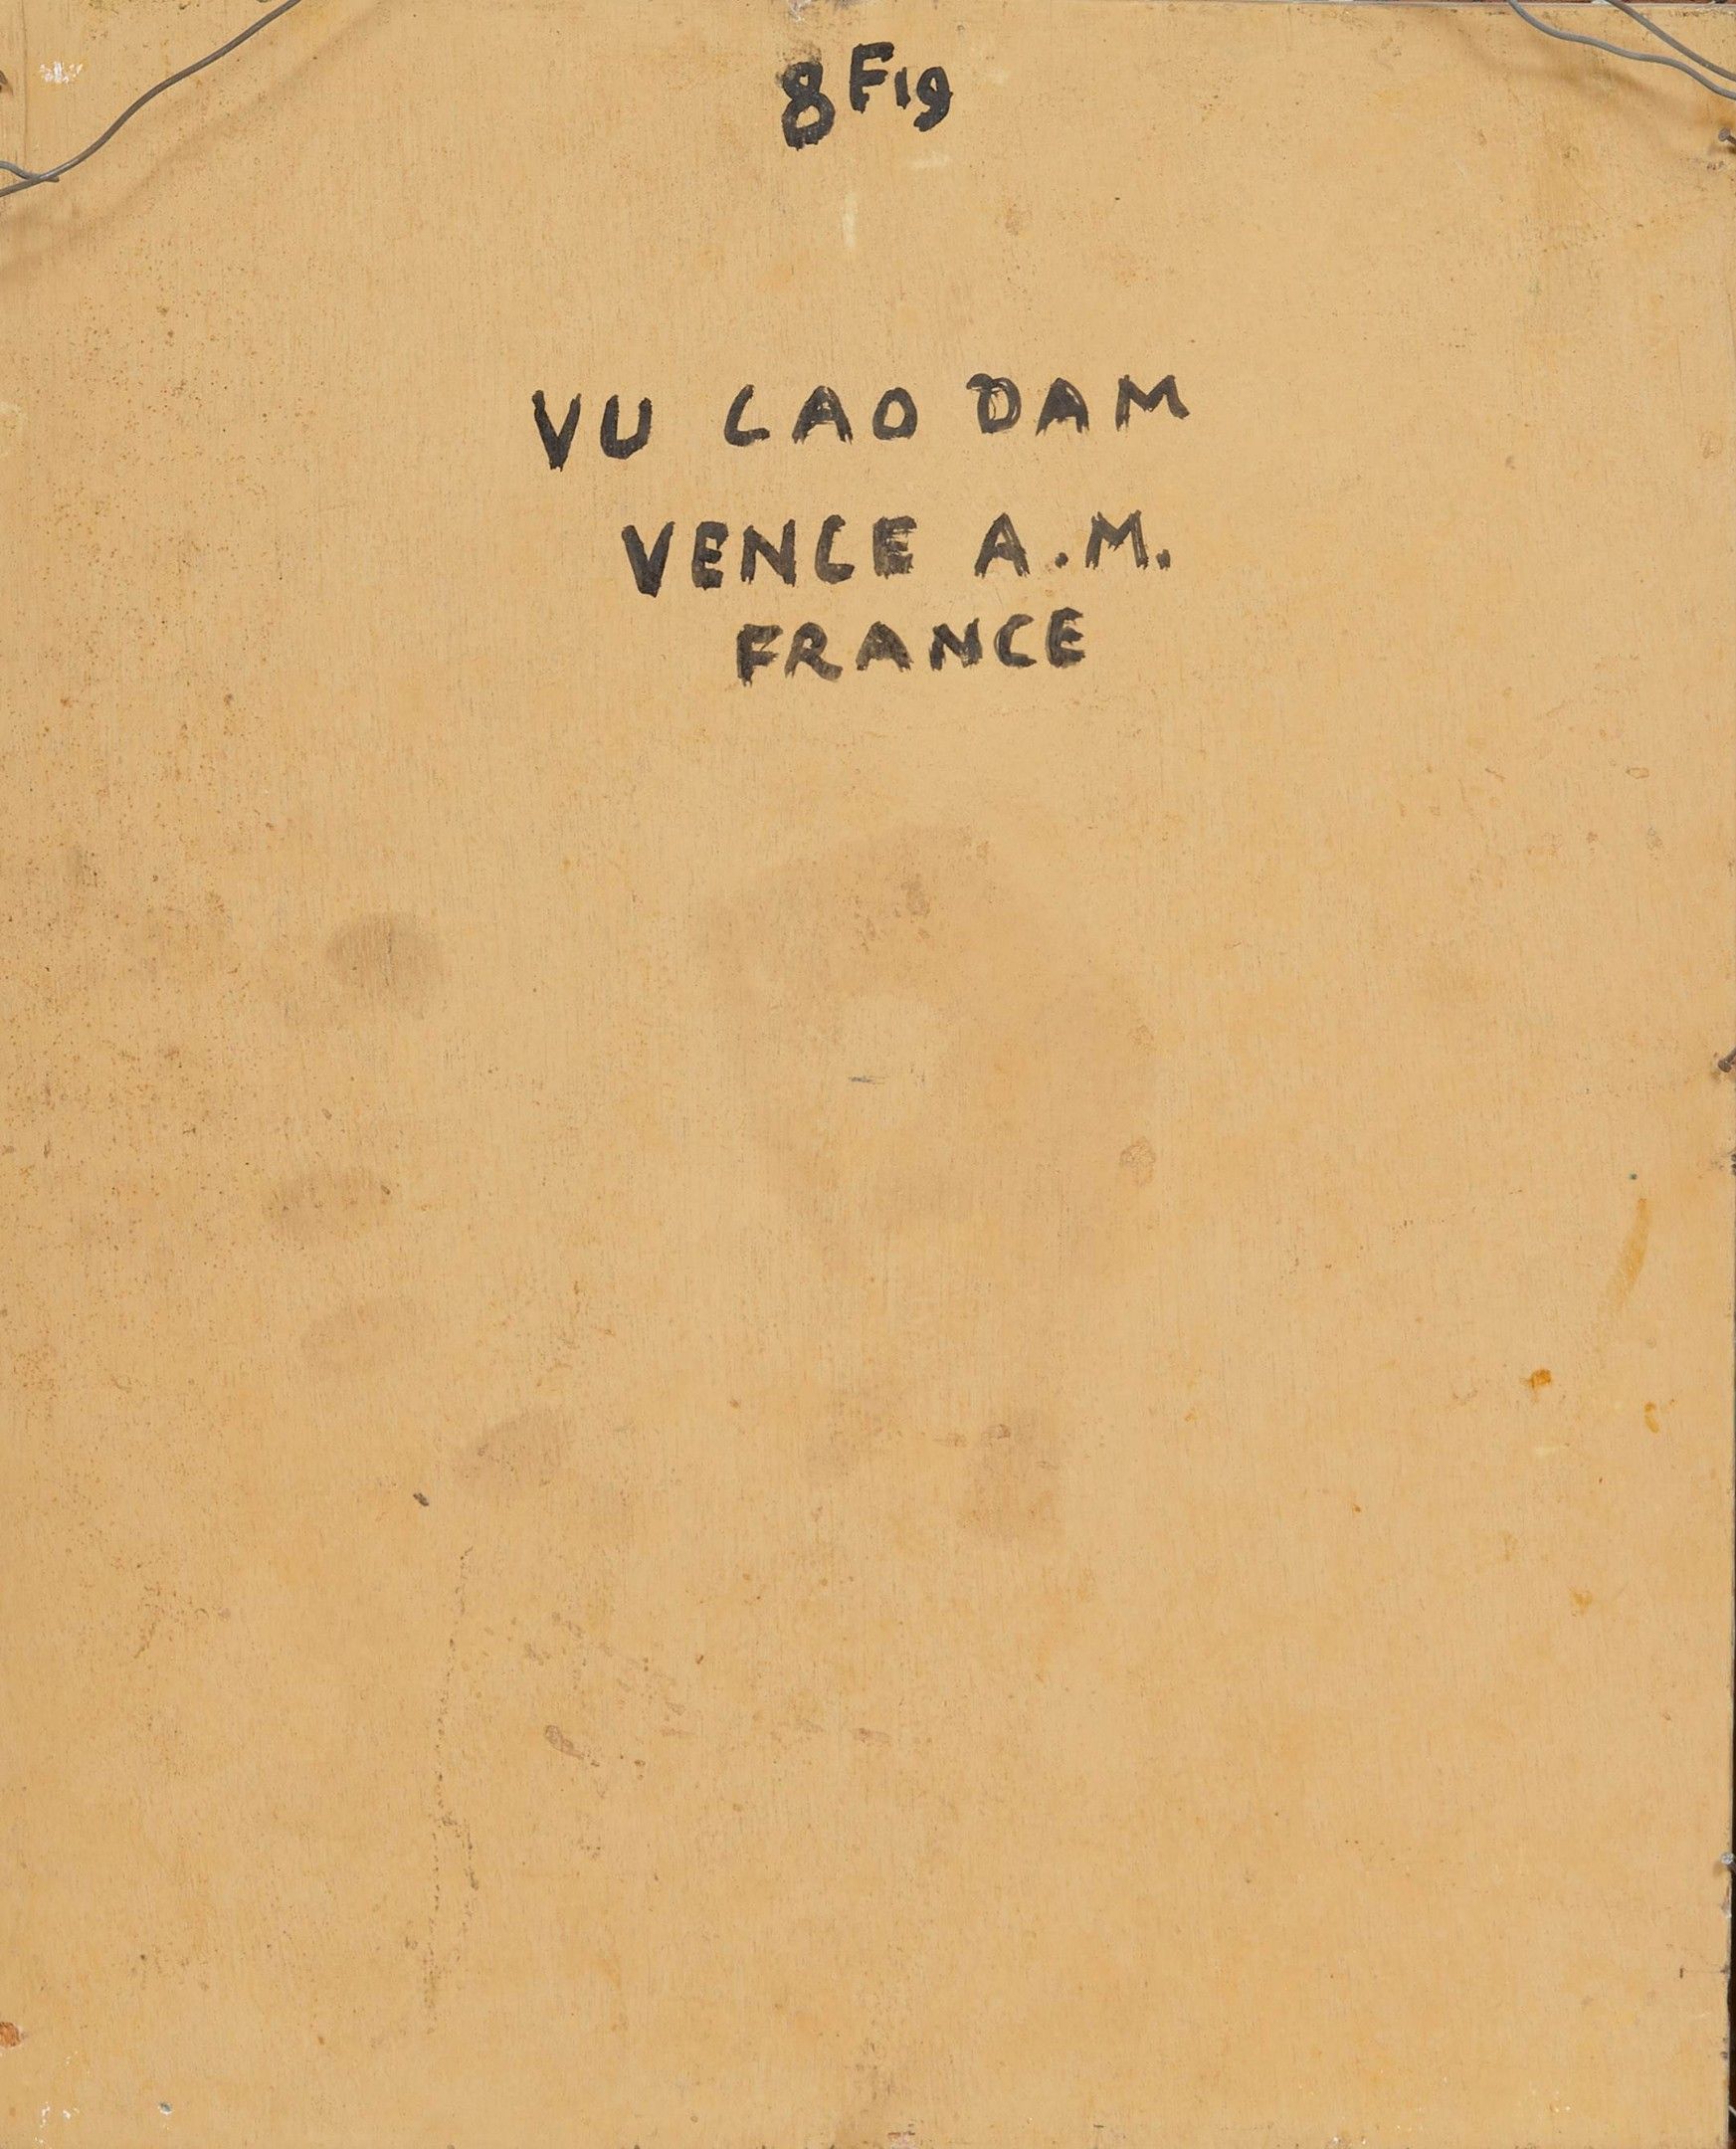 8 Fig
VU CAO DAM
VENCE A.M.
FRANCE